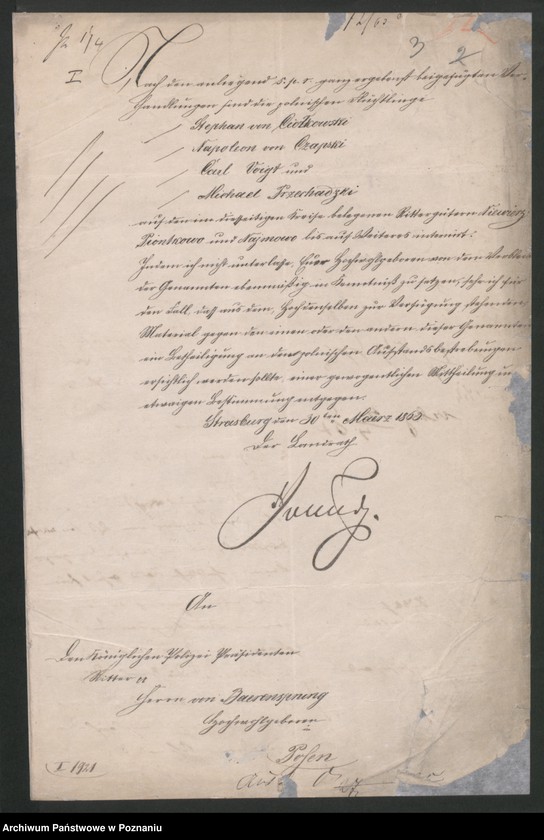 I
3 2
Nach den anliegend s. p. r. ganz ergebenst beigefügten Ver-
handlungen sind die polnischen Flüchtlinge
Stephan von Ciolkowski
Napoleon von Czapski
Carl Voigt und
Michael
auf den im diesseitigen Kreise belegenen Rittergütern
Piontkowo und Najmowo bis auf Weiteres internirt.
Indem ich nicht unterlasse, Euer Hochwohlgeboren von dem Verbleib
der Genannten ebenmäßig in Kenntniß zu setzen, sehe ich für
den Fall, daß aus dem Hochdenselben zur Verfügung stehenden
Material gegen den einen oder den andern dieser Genannten
eine Betheiligung an den polnischen Aufstandsbestrebungen
ersichtlich werden sollte, einer gewogentlichen Mittheilung und
etwaigen Bestimmung entgegen.
Strasburg den 30ten März 1863
Der Landrath
An
den Königlichen Polizei Präsidenten
Ritter
Herrn von Baerensprung
Hochwohlgeboren
Posen
I 1921
Archiwum Państwowe w Poznaniu